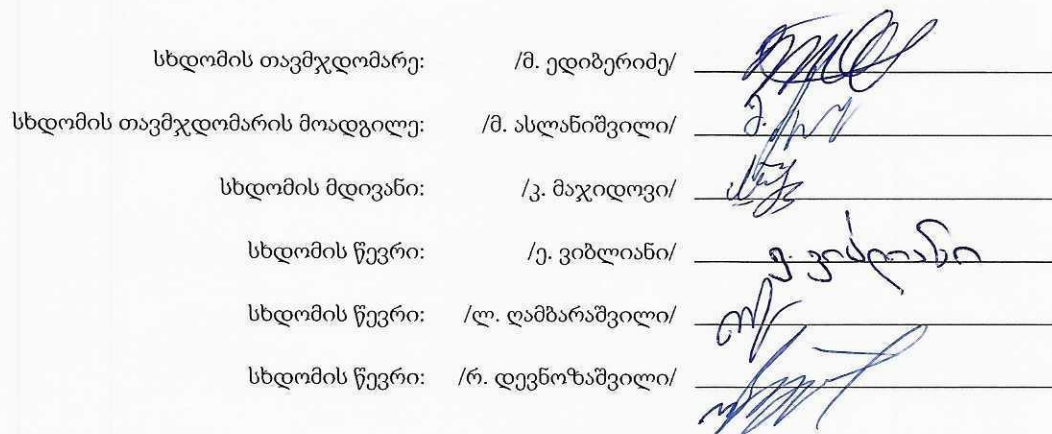 სხდომის თავმჯდომარე: /მ. ედიბერიძე/
სხდომის თავმჯდომარის მოადგილე: /მ. ასლანიშვილი/ მ.
სხდომის მდივანი: /კ. მაჯიდოვი/
სხდომის წევრი: /ე. ვიბლიანი/ ე. ვიბლიანი
სხდომის წევრი: /ლ. ღამბარაშვილი/
სხდომის წევრი: /რ. დევნოზაშვილი/